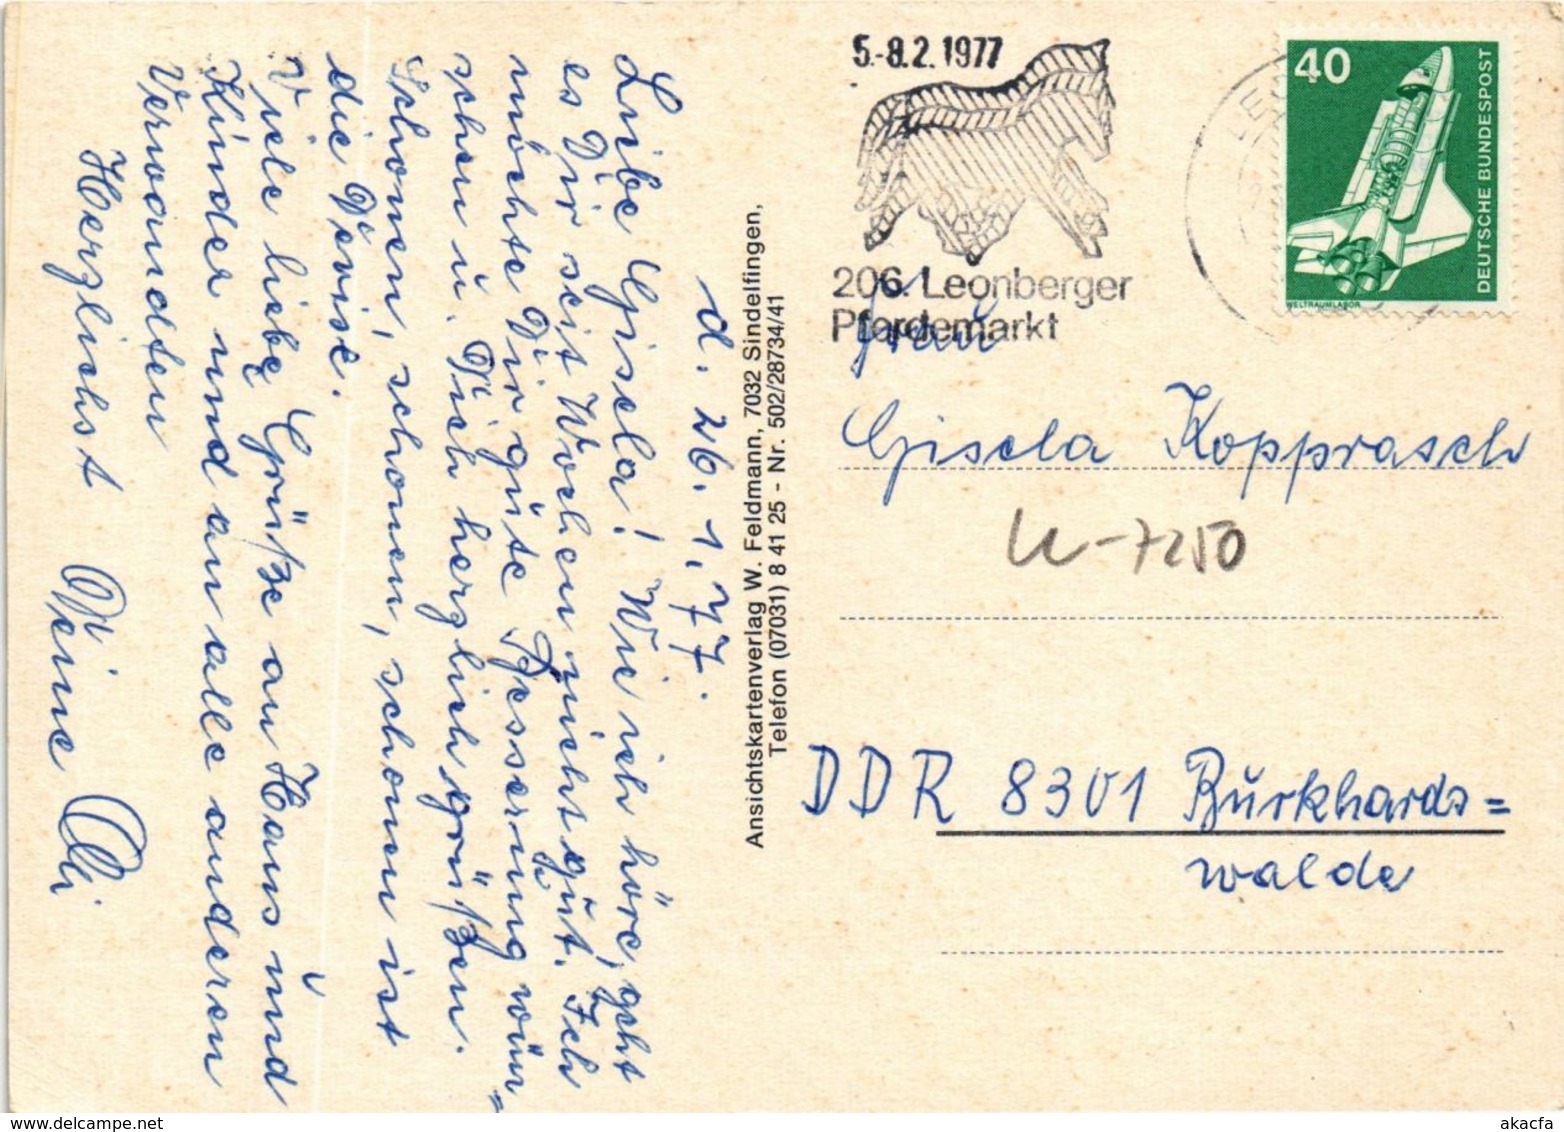 d. 26.1.77.
Liebe Gisela! Wie ich höre, geht
es Dir seit Wochen nicht gut. Ich
möchte Dir gute Besserung wün=
schen u. Dich herzlich grüßen.
Schonen, schonen, schonen ist
die Devise.
Viele liebe Grüße an Hans und
Kinder und an alle anderen
Verwandten
Herzlichst Deine Elli
Ansichtskartenverlag W. Feldmann, 7032 Sindelfingen,
Telefon (07031) 8 41 25 - Nr. 502/28734/41
5.-8.2.1977
206. Leonberger
Pferdemarkt
40
DEUTSCHE BUNDESPOST
WELTRAUMLABOR
Frau
Gisela Kopprasch
U-7250
DDR 8301 Burkhards=
walde
akpool.de
www.delcampe.net
akacfa